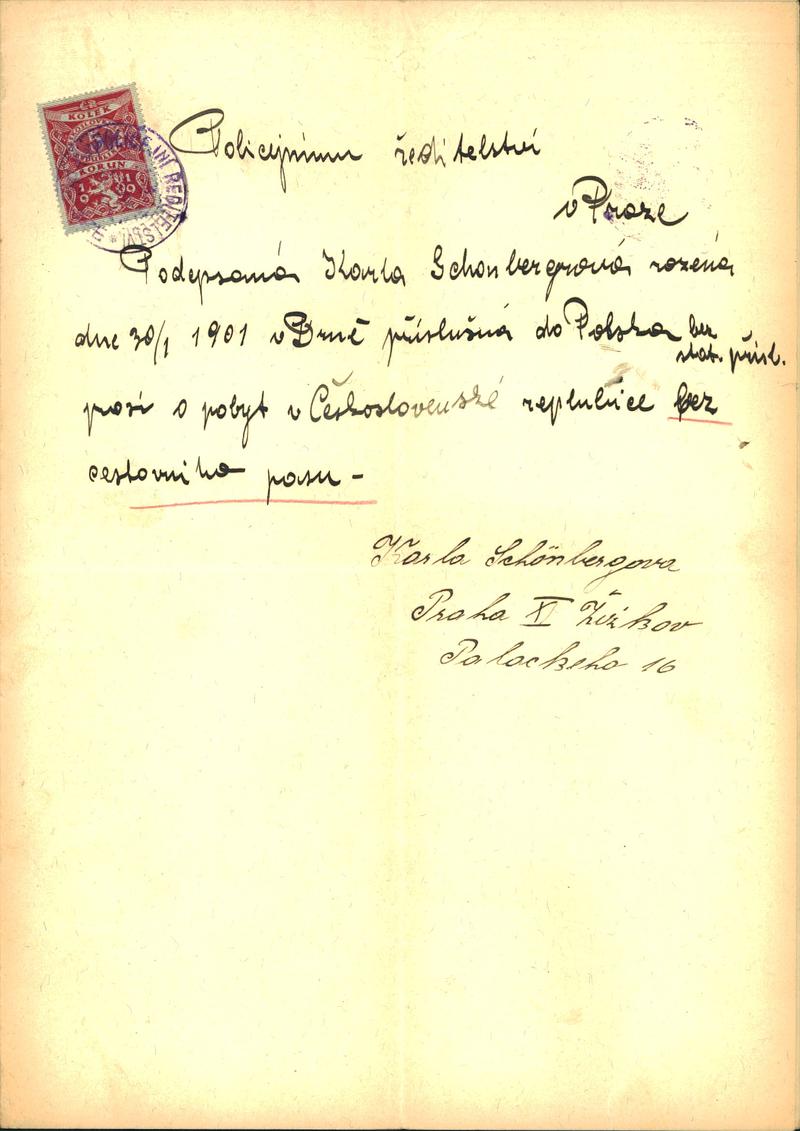 KOLEK
KORUN
POLICEJNÍ ŘEDITELSTVÍ
Policejnímu ředitelství
v Praze
Podepsaná Karla Schonbergrová rozená
dne 30/1 1901 v Brně příslušná do Polska bez
stát. přísl.
prosí o pobyt v Československé replubice bez
cestovniho pasu -
Karla Schönbergova
Praha XI Žižkov
Palackeho 16